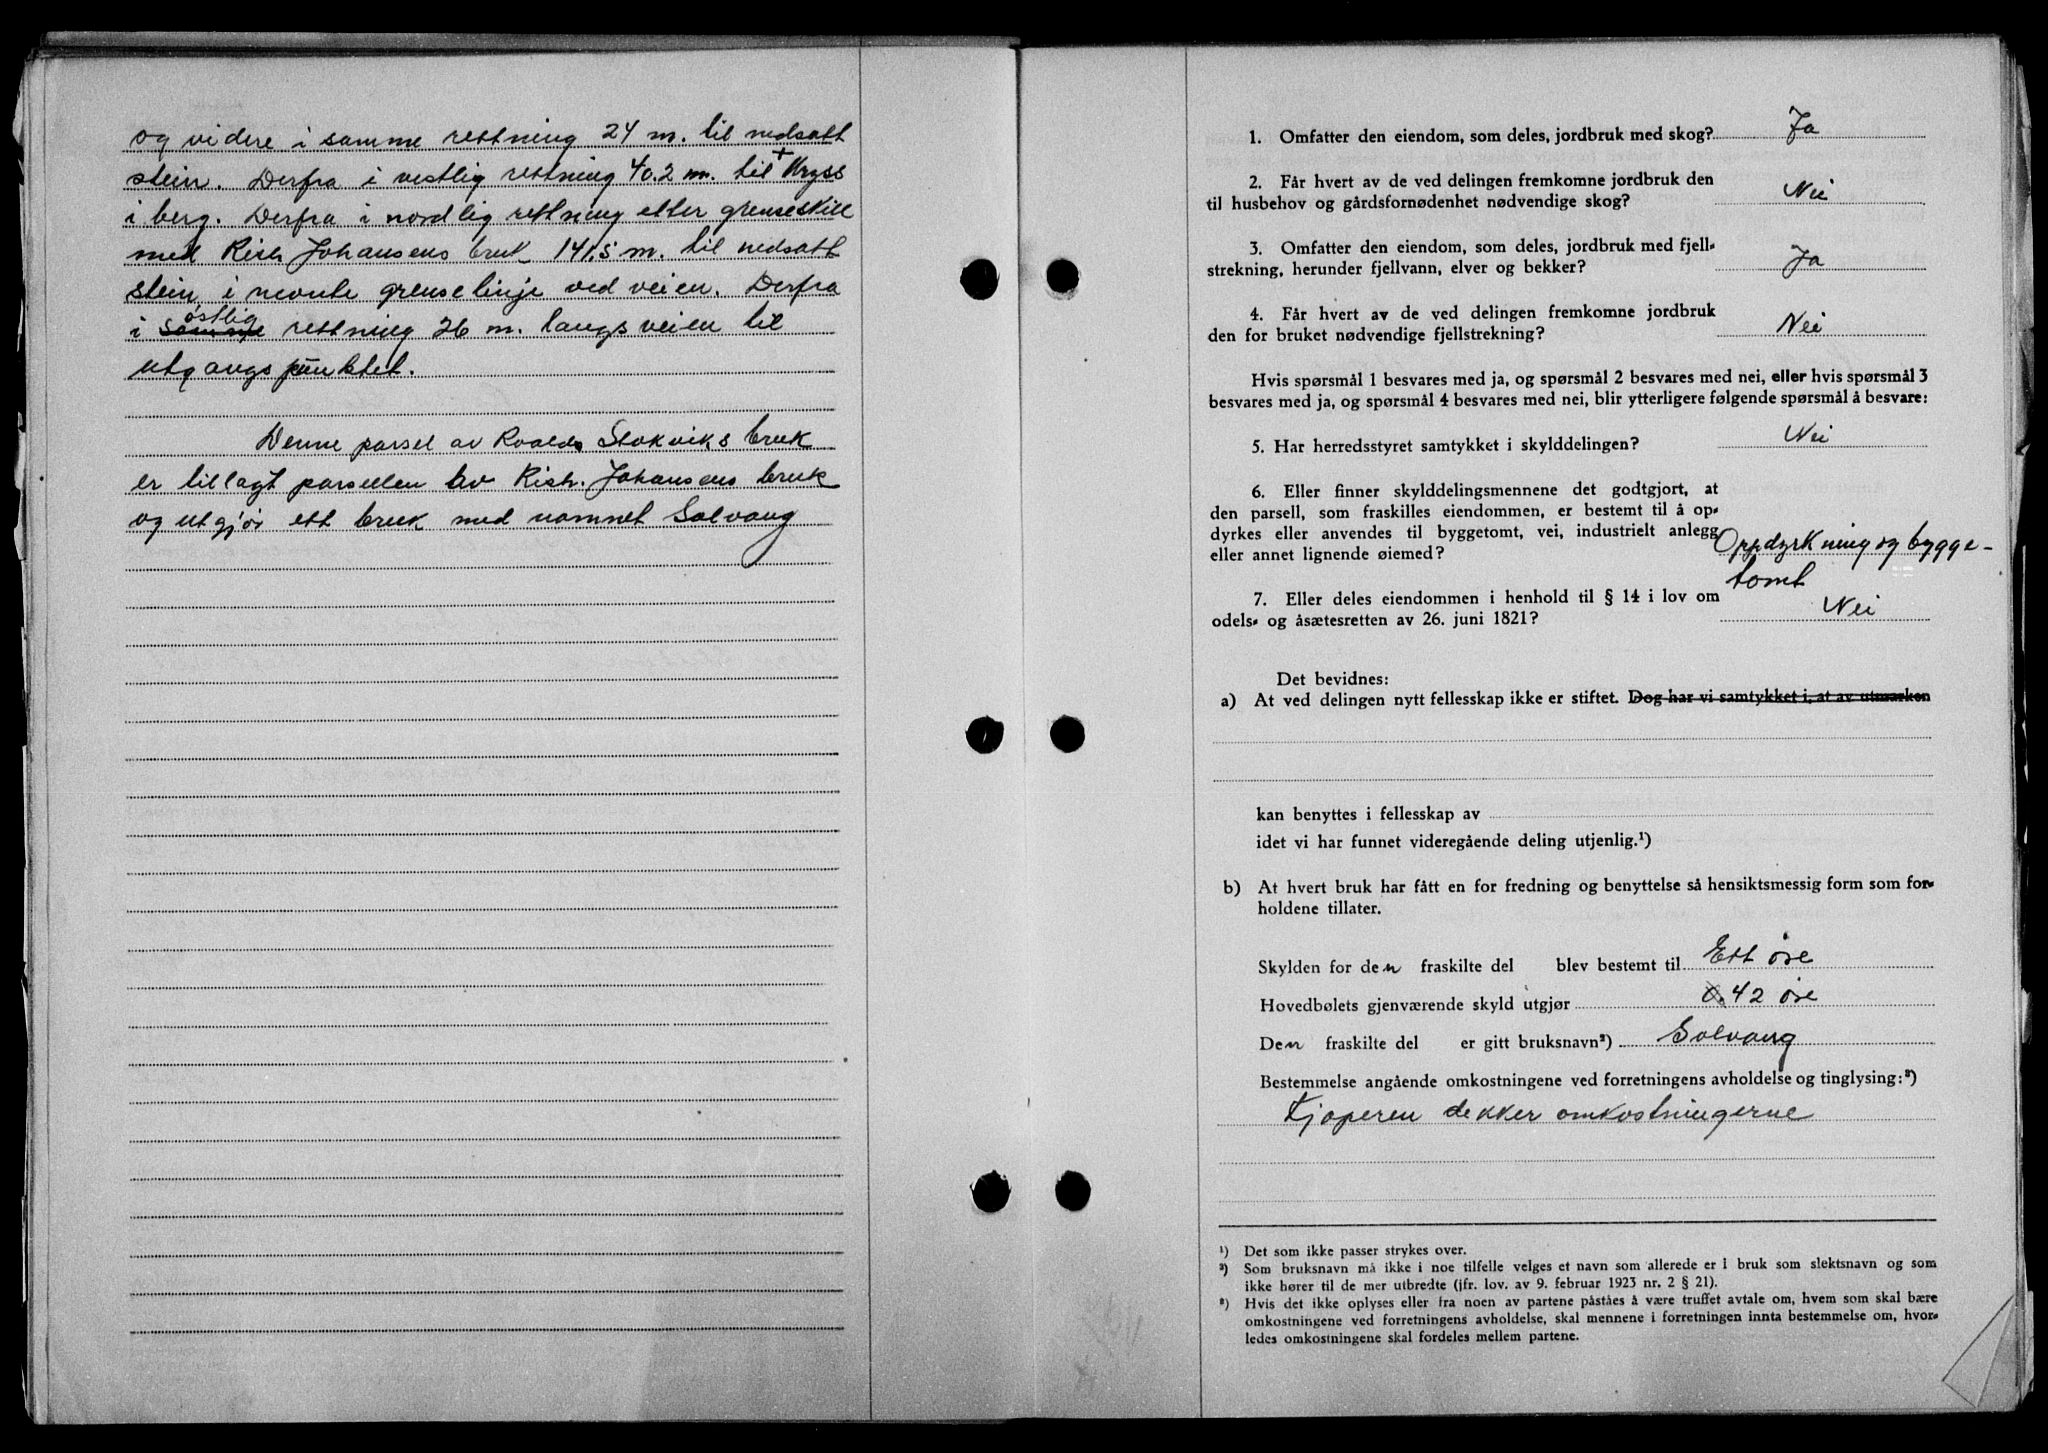 og videre i samme rettning 24 m. til nedsatt
stein. Derfra i vestlig rettning 40.2 m. til + Kryss
i berg. Derfra i nordlig rettning etter grenseskill
med Rich Johansens bruk 141,5 m. til nedsatt
stein i nevnte grenselinje ved veien. Derfra
i samme østlig rettning 26 m. langs veien til
utgangspunktet.
Denne parsel av Roalds Stokviks bruk
er tillagt parsellen av Rich. Johansens bruk
og utgjør ett bruk med namnet Solvang
1. Omfatter den eiendom, som deles, jordbruk med skog? Ja
2. Får hvert av de ved delingen fremkomne jordbruk den
til husbehov og gårdsfornødenhet nødvendige skog? Nei
3. Omfatter den eiendom, som deles, jordbruk med fjell-
strekning, herunder fjellvann, elver og bekker? Ja
4. Får hvert av de ved delingen fremkomne jordbruk
den for bruket nødvendige fjellstrekning? Nei
Hvis spørsmål 1 besvares med ja, og spørsmål 2 besvares med nei, eller hvis spørsmål 3
besvares med ja, og spørsmål 4 besvares med nei, blir ytterligere følgende spørsmål å besvare:
5. Har herredsstyret samtykket i skylddelingen? Nei
6. Eller finner skylddelingsmennene det godtgjort, at
den parsell, som fraskilles eiendommen, er bestemt til å op-
dyrkes eller anvendes til byggetomt, vei, industrielt anlegg
eller annet lignende øiemed? Oppdyrkning og bygge-
tomt
7. Eller deles eiendommen i henhold til § 14 i lov om
odels- og åsætesretten av 26. juni 1821? Nei
Det bevidnes:
a) At ved delingen nytt fellesskap ikke er stiftet. Dog har vi samtykket i, at av utmarken
kan benyttes i fellesskap av
idet vi har funnet videregående deling utjenlig.¹)
b) At hvert bruk har fått en for fredning og benyttelse så hensiktsmessig form som for-
holdene tillater.
Skylden for den fraskilte del blev bestemt til Ett øre
Hovedbølets gjenværende skyld utgjør 0.42 øre
Den fraskilte del er gitt bruksnavn²) Solvang
Bestemmelse angående omkostningene ved forretningens avholdelse og tinglysing:³)
Kjøperen dekker omkostningerne
¹) Det som ikke passer strykes over.
²) Som bruksnavn må ikke i noe tilfelle velges et navn som allerede er i bruk som slektsnavn og som
ikke hører til de mer utbredte (jfr. lov. av 9. februar 1923 nr. 2 § 21).
³) Hvis det ikke oplyses eller fra noen av partene påståes å være truffet avtale om, hvem som skal bære
omkostningene ved forretningens avholdelse, skal mennene i forretningen innta bestemmelse om, hvor-
ledes omkostningene skal fordeles mellem partene.